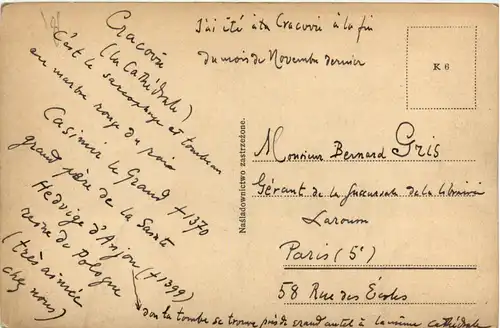 Cracovie
(la Cathédrale)
C'est le sarcophage et tombeau
en marbre rouge du roi
Casimir le Grand †1370
grand père de la Sainte
Hedvige d'Anjou (†1399)
reine de Pologne
(très aimée
chez nous)
don la tombe se trouve près de grand autel à la même cathédrale
J'ai été à Cracovie à la fin
du mois de Novembre dernier
K 6
Naśladownictwo zastrzeżone.
Monsieur Bernard Gris
Gérant de la Succursale de la librairie
Larousse
Paris (5e)
58 Rue des Écoles